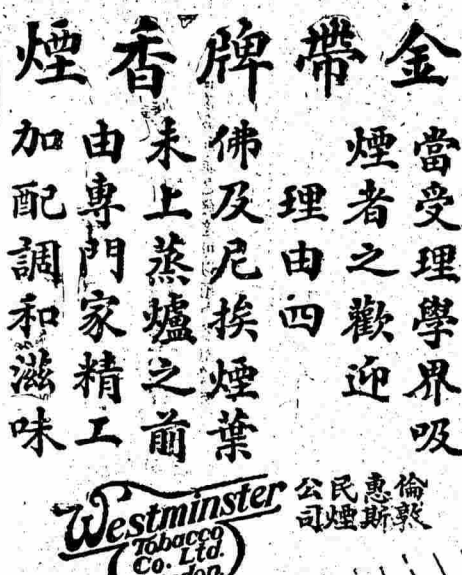 金帶牌香煙
當受理學界吸
煙者之歡迎
理由四
佛及尼挨煙葉
未上蒸爐之前
由專門家精工
加配調和滋味
倫敦
惠斯
民煙
公司
Westminster
Tobacco
Co. Ltd.
London